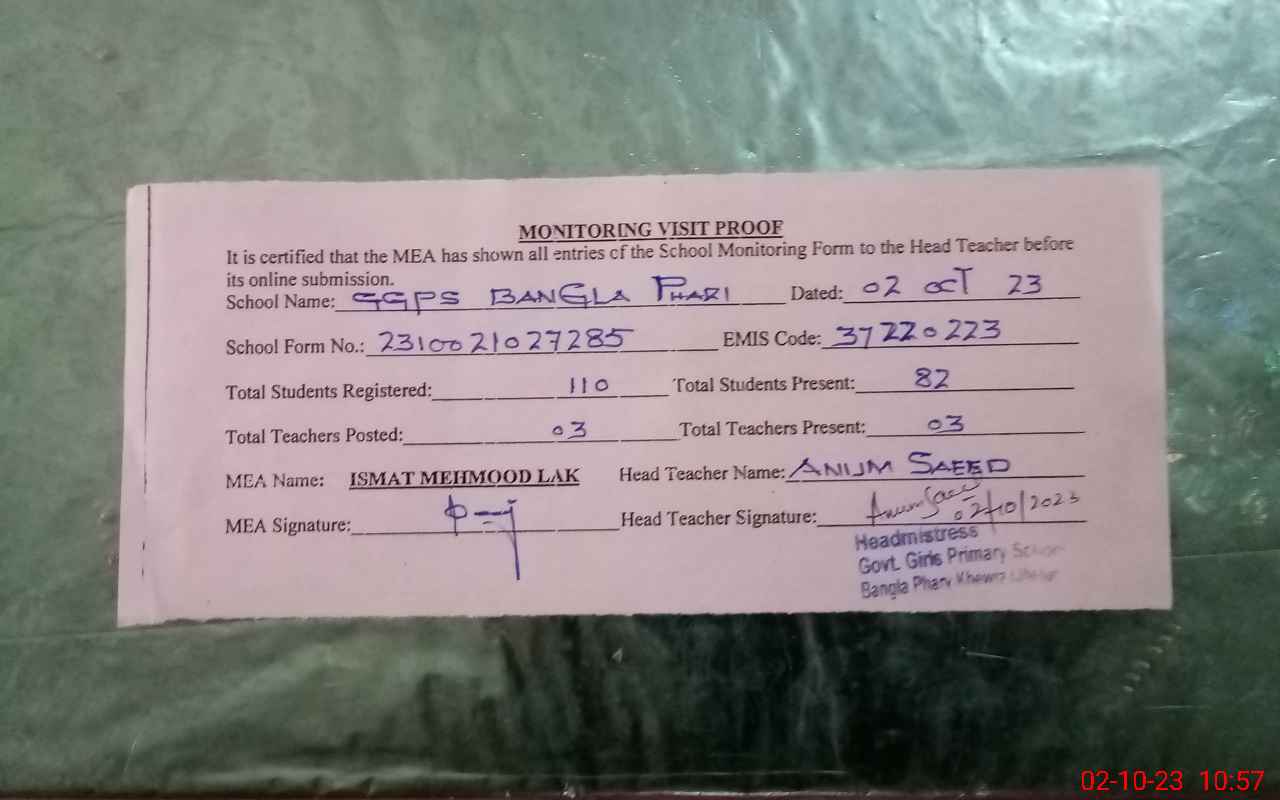 MONITORING VISIT PROOF
It is certified that the MEA has shown all entries of the School Monitoring Form to the Head Teacher before
its online submission.
School Name: GGPS BANGLA PHARI Dated: 02 OCT 23
School Form No.: 2310021027285 EMIS Code: 37220223
Total Students Registered: 110 Total Students Present: 82
Total Teachers Posted: 03 Total Teachers Present: 03
MEA Name: ISMAT MEHMOOD LAK Head Teacher Name: ANUM SAEED
MEA Signature: Head Teacher Signature: Anum Saeed
02/10/2023
Headmistress
Govt. Girls Primary School
Bangla Phary Khewra
02-10-23 10:57